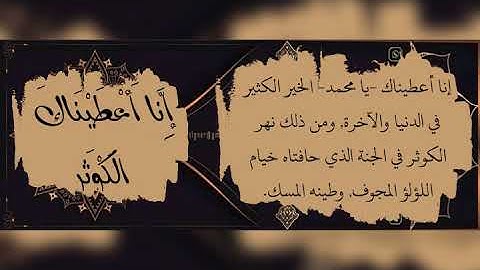 إنا أعطيناك -يا محمد- الخير الكثير
في الدنيا والآخرة، ومن ذلك نهر
الكوثر في الجنة الذي حافتاه خيام
اللؤلؤ المجوف، وطينه المسك.
إِنَّا أَعْطَيْنَاكَ
الكَوْثَر